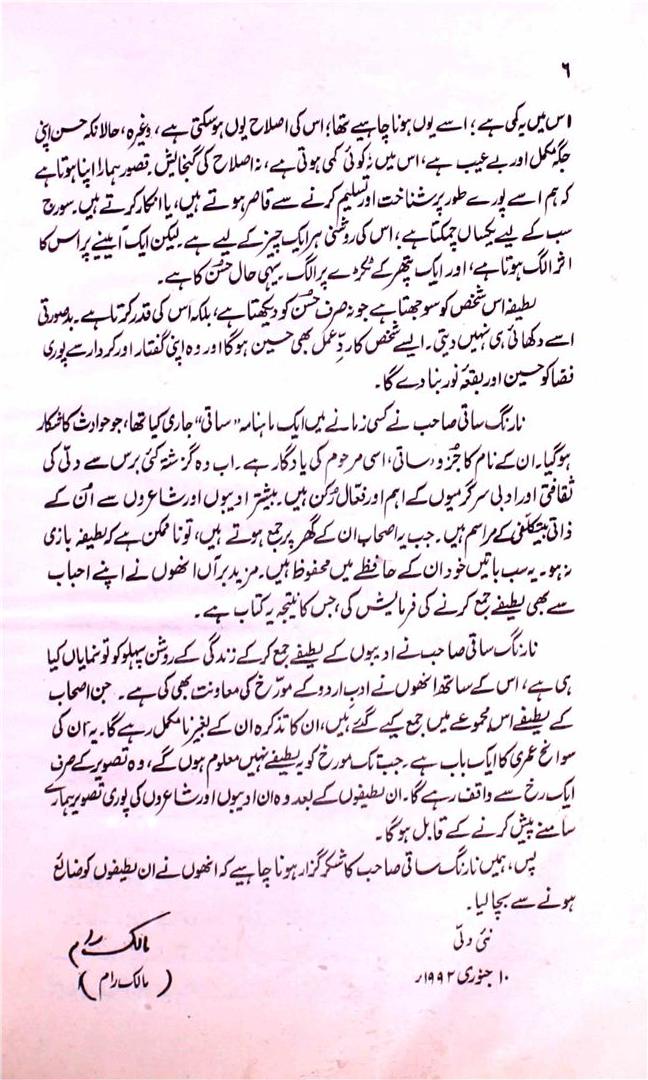 ۶
اس میں یہ کمی ہے؛ اسے یوں ہونا چاہیے تھا؛ اس کی اصلاح یوں ہو سکتی ہے، وغیرہ، حالانکہ حسن اپنی
جگہ مکمل اور بے عیب ہے، اس میں نہ کوئی کمی ہوتی ہے، نہ اصلاح کی گنجایش۔ قصور ہمارا اپنا ہوتا ہے
کہ ہم اسے پورے طور پر شناخت اور تسلیم کرنے سے قاصر ہوتے ہیں، یا انکار کرتے ہیں۔ سورج
سب کے لیے یکساں چمکتا ہے، اس کی روشنی ہر ایک چیز کے لیے ہے۔ لیکن ایک آئینے پر اس کا
اثر الگ ہوتا ہے، اور ایک پتھر کے ٹکڑے پر الگ۔ یہی حال حُسن کا ہے۔
لطیفہ اس شخص کو سوجھتا ہے جو نہ صرف حُسن کو دیکھتا ہے، بلکہ اس کی قدر کرتا ہے۔ بدصورتی
اسے دکھائی ہی نہیں دیتی۔ ایسے شخص کا ردِّ عمل بھی حسین ہوگا اور وہ اپنی گفتار اور کردار سے پوری
فضا کو حسین اور بقعۂ نور بنا دے گا۔
نارنگ ساقی صاحب نے کسی زمانے میں ایک ماہنامہ "ساقی" جاری کیا تھا، جو حوادث کا شکار
ہوگیا۔ ان کے نام کا جُزو، ساقی، اسی مرحوم کی یادگار ہے۔ اب وہ گزشتہ کئی برس سے دلّی کی
ثقافتی اور ادبی سرگرمیوں کے اہم اور فعّال رُکن ہیں۔ بیشتر ادیبوں اور شاعروں سے اُن کے
ذاتی بیتکلّفی کے مراسم ہیں۔ جب یہ اصحاب ان کے گھر پر جمع ہوتے ہیں، تو ناممکن ہے کہ لطیفہ بازی
نہ ہو۔ یہ سب باتیں خود ان کے حافظے میں محفوظ ہیں۔ مزید برآں انھوں نے اپنے احباب
سے بھی لطیفے جمع کرنے کی فرمایش کی، جس کا نتیجہ یہ کتاب ہے۔
نارنگ ساقی صاحب نے ادیبوں کے لطیفے جمع کر کے زندگی کے روشن پہلو کو تو نمایاں کیا
ہی ہے، اس کے ساتھ انھوں نے ادبِ اردو کے مورّخ کی معاونت بھی کی ہے۔ جن اصحاب
کے لطیفے اس مجموعے میں جمع کیے گئے ہیں، ان کا تذکرہ ان کے بغیر نامکمل رہے گا۔ یہ اُن کی
سوانح عمری کا ایک باب ہے۔ جب تک مورخ کو یہ لطیفے نہیں معلوم ہوں گے، وہ تصویر کے صرف
ایک رخ سے واقف رہے گا۔ ان لطیفوں کے بعد وہ ان ادیبوں اور شاعروں کی پوری تصویر ہمارے
سامنے پیش کرنے کے قابل ہوگا۔
پس، ہمیں نارنگ ساقی صاحب کا شکرگزار ہونا چاہیے کہ انھوں نے ان لطیفوں کو ضائع
ہونے سے بچا لیا۔
نئی دلّی
۱۰ جنوری ۱۹۹۲ء
مالک رام
(مالک رام)